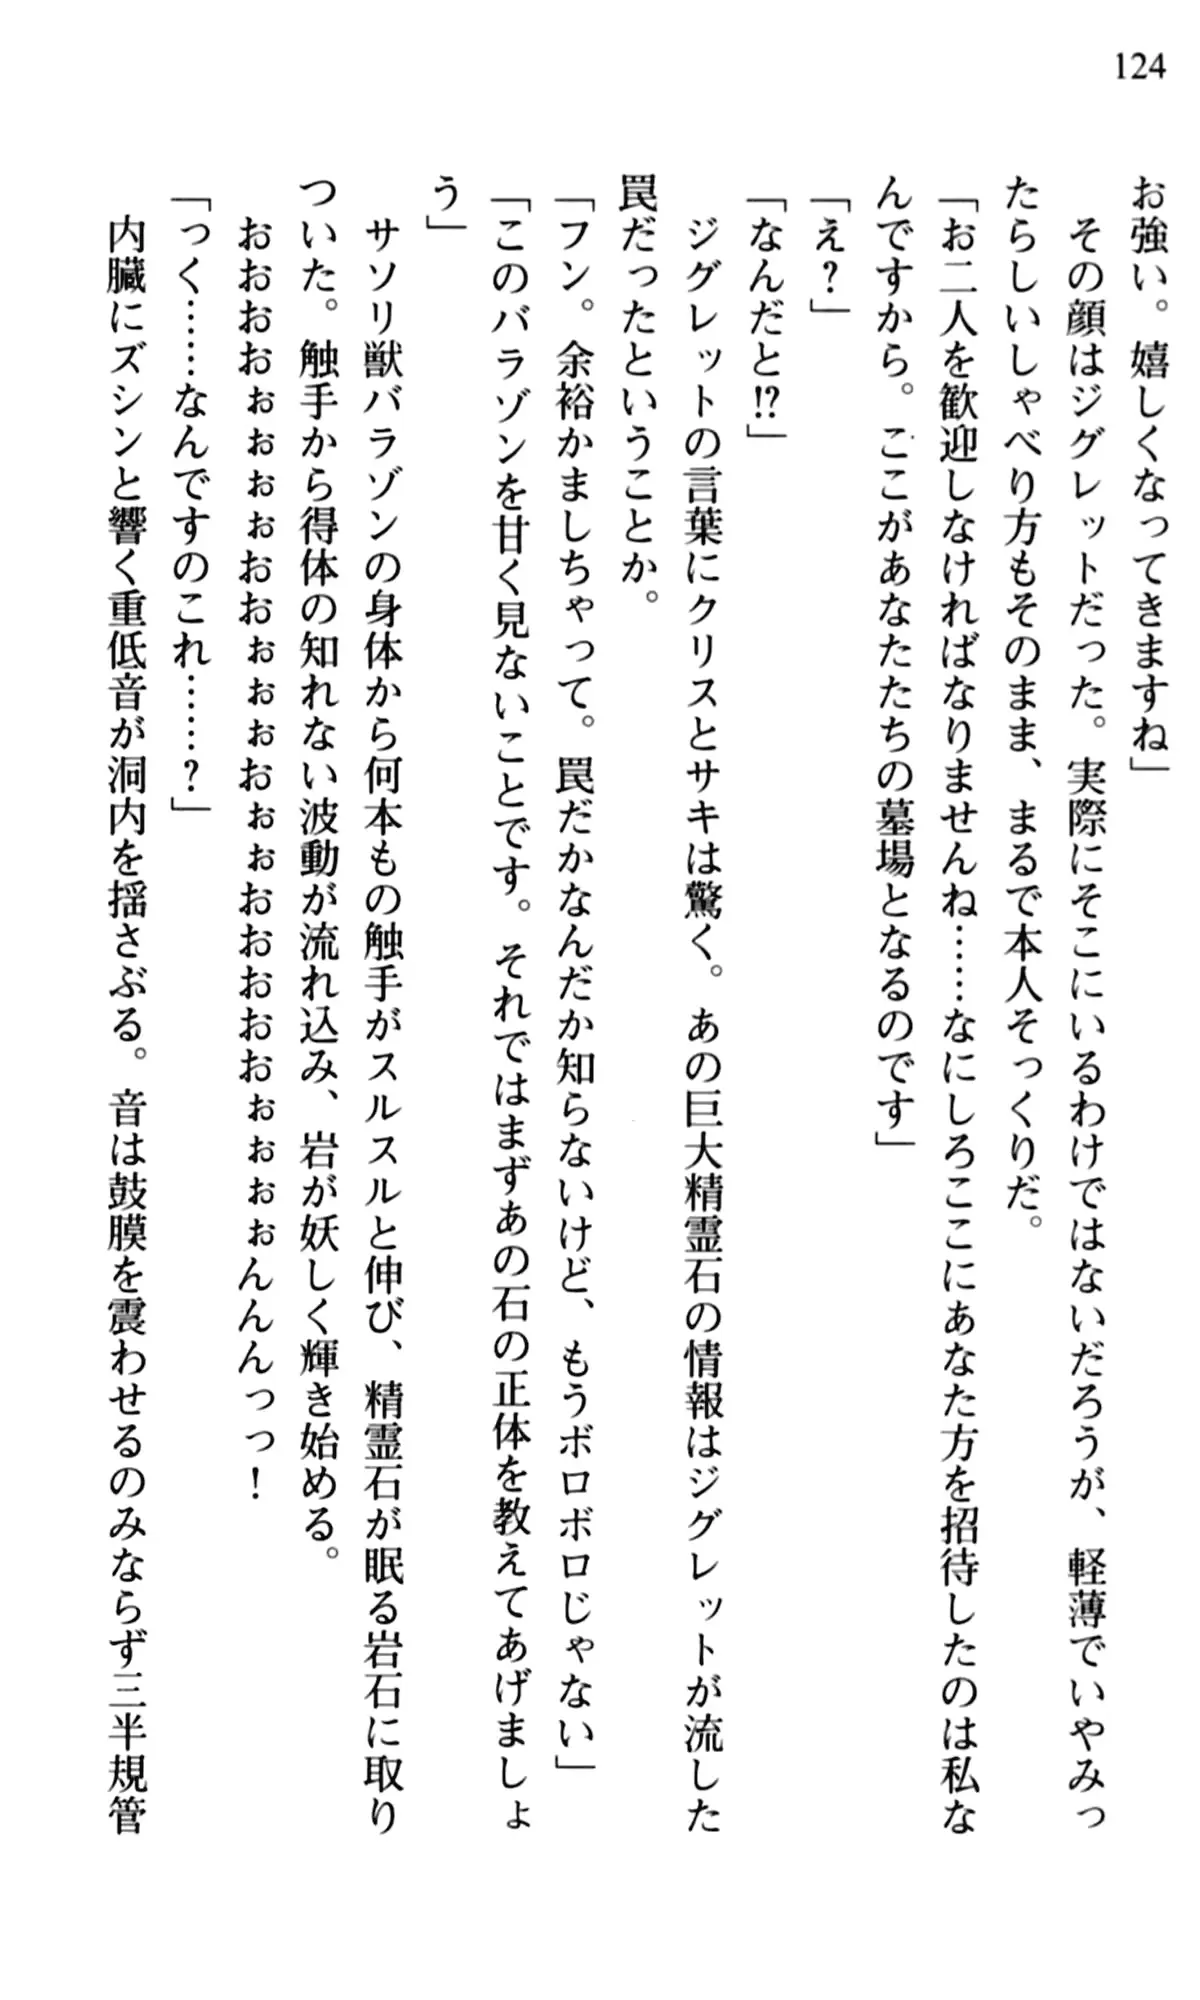 124
お強い。嬉しくなってきますね」
その顔はジグレットだった。実際にそこにいるわけではないだろうが、軽薄でいやみっ
たらしいしゃべり方もそのまま、まるで本人そっくりだ。
「お二人を歓迎しなければなりませんね……なにしろここにあなた方を招待したのは私な
んですから。ここがあなたたちの墓場となるのです」
「え？」
「なんだと!?」
ジグレットの言葉にクリスとサキは驚く。あの巨大精霊石の情報はジグレットが流した
罠だったということか。
「フン。余裕かましちゃって。罠だかなんだか知らないけど、もうボロボロじゃない」
「このバラゾンを甘く見ないことです。それではまずあの石の正体を教えてあげましょ
う」
サソリ獣バラゾンの身体から何本もの触手がスルスルと伸び、精霊石が眠る岩石に取り
ついた。触手から得体の知れない波動が流れ込み、岩が妖しく輝き始める。
おおおおぉぉぉぉおおぉぉぉおぉぉおおおおおぉぉぉぉんんんっっ！
「っく……なんですのこれ……？」
内臓にズシンと響く重低音が洞内を揺さぶる。音は鼓膜を震わせるのみならず三半規管